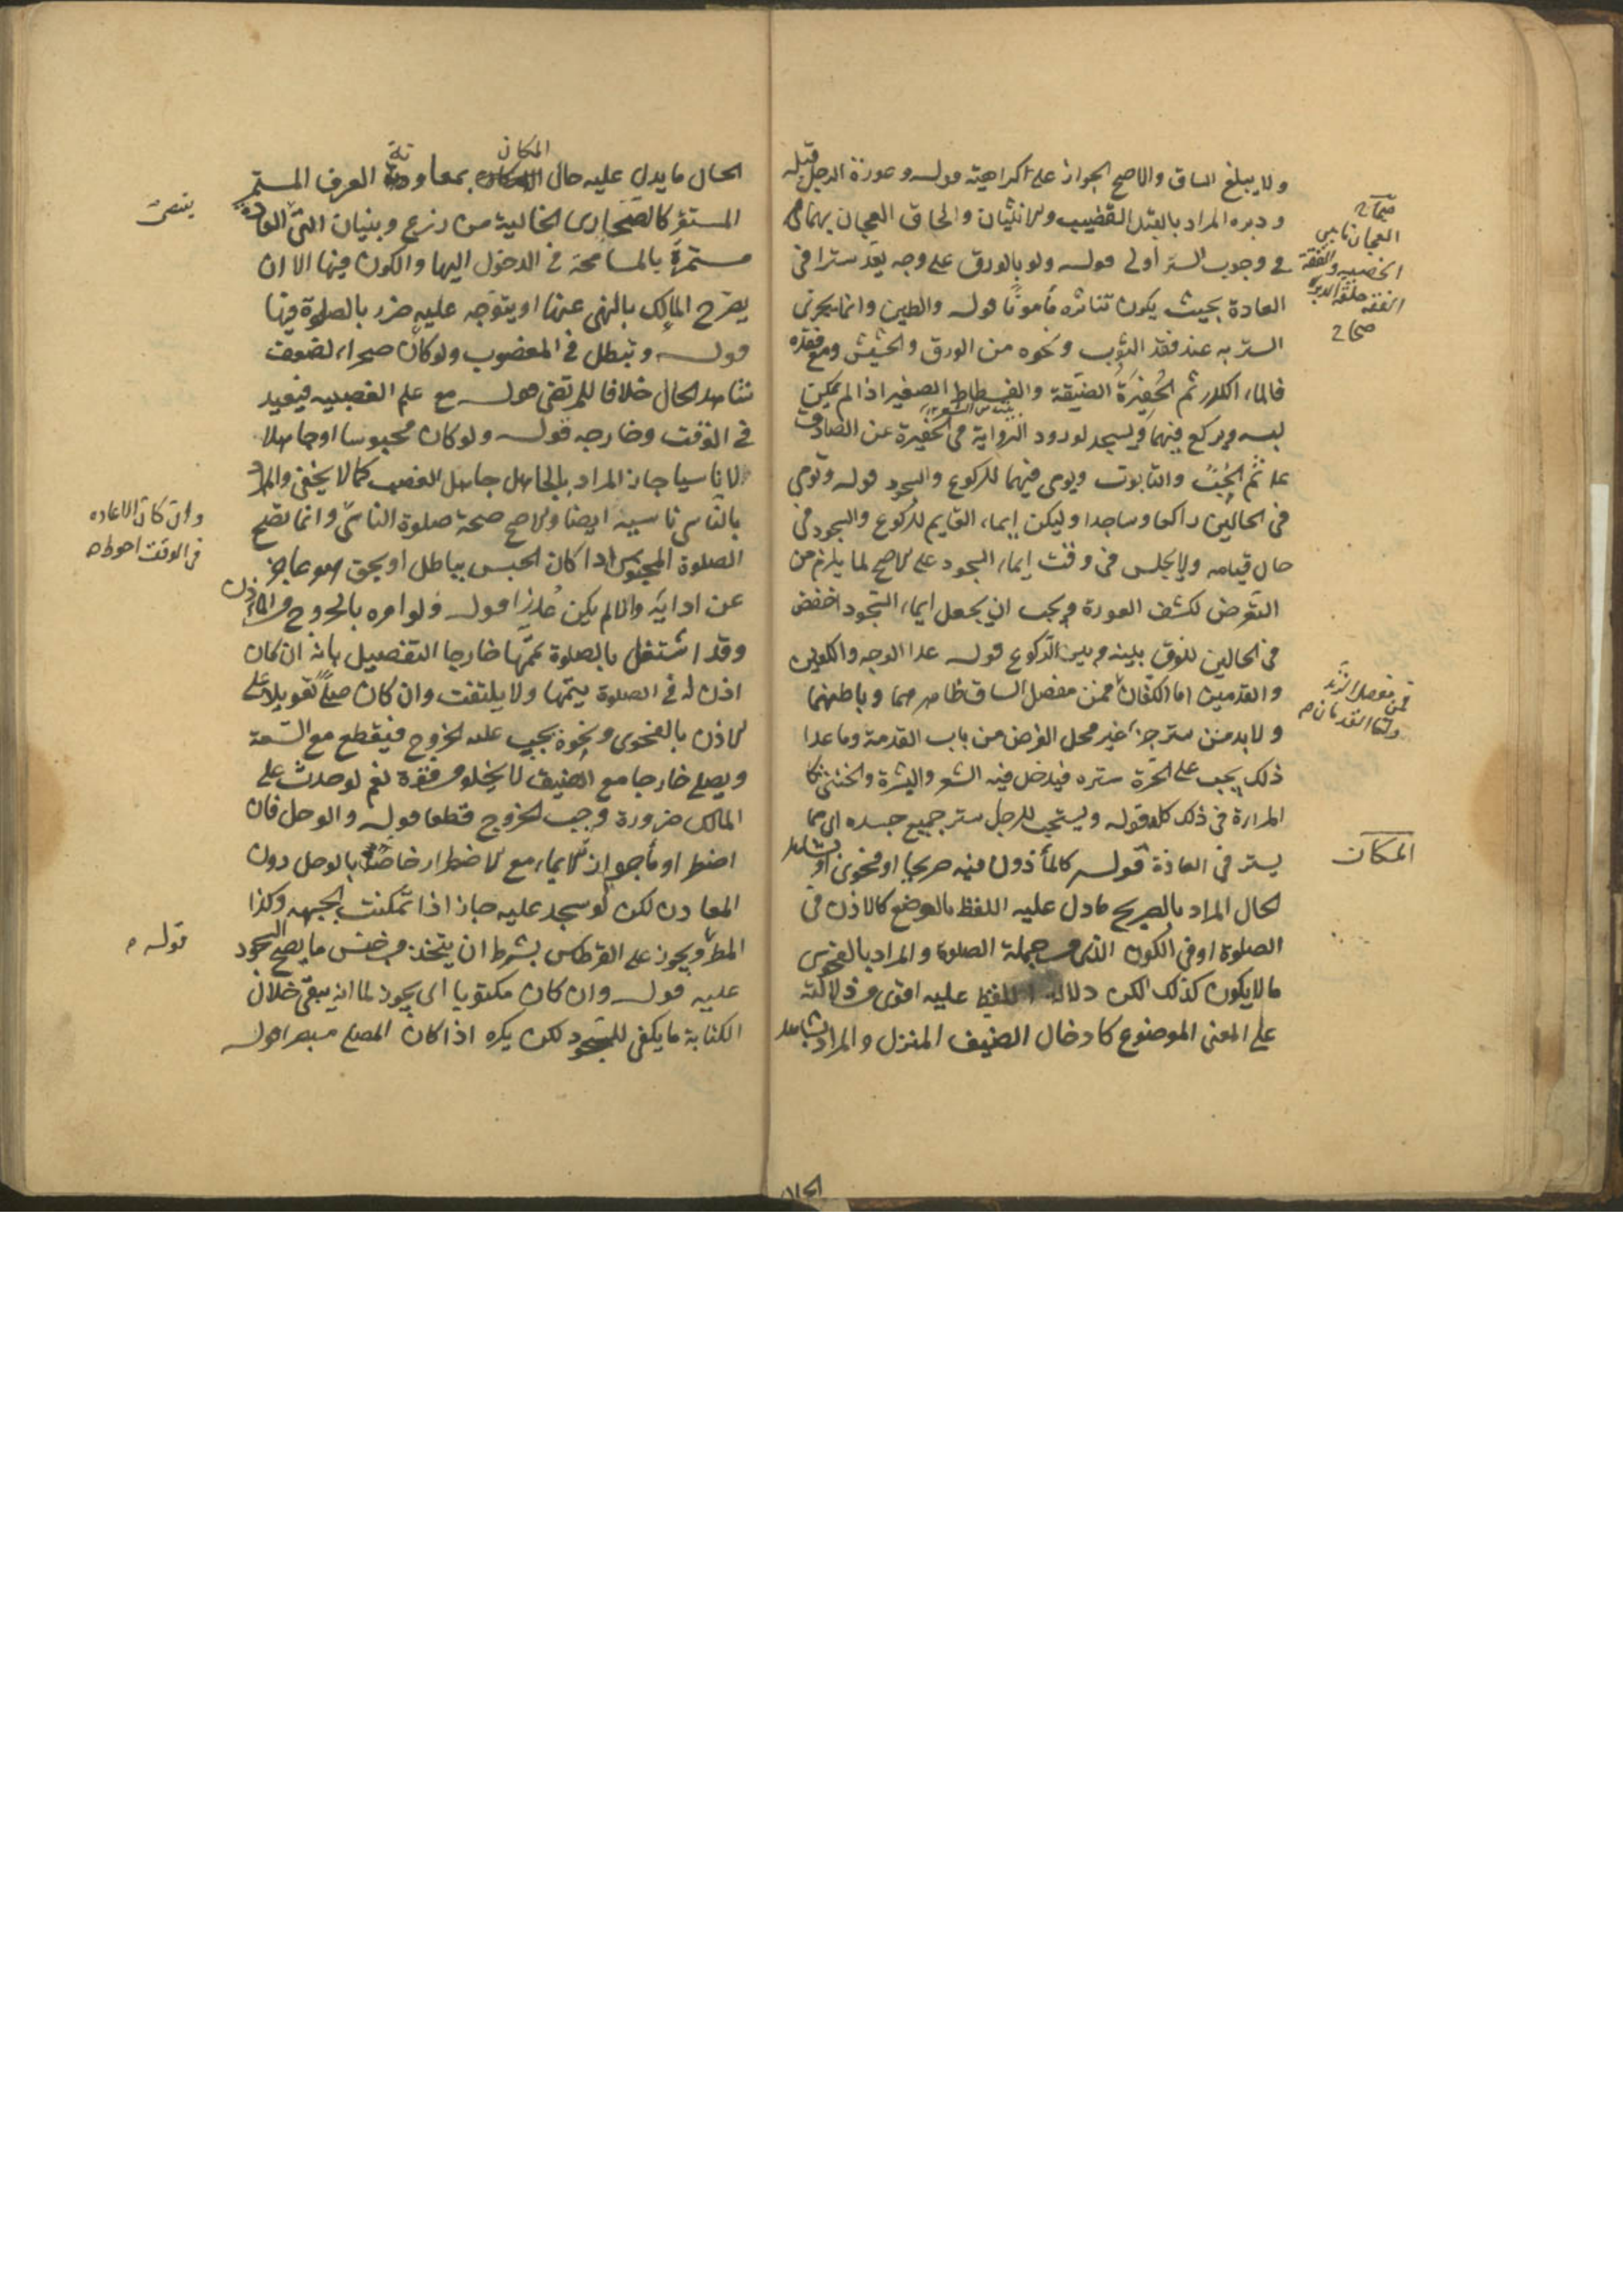 ولا يبلغ الساق والاصح الجواز على كراهيته قوله وعورة الرجل قبله
ودبره المراد بالقبل القضيب والانثيان والحاق العجان بهما
في وجوب الستر أولى قوله ولو بالورق على وجه يعد سترا في
العادة بحيث يكون تناثره مأمونا قوله والطين وانما يجزى
الستر به عند فقد الثوب ونحوه من الورق والحشيش ومع فقده
فالماء الكدر ثم الحفيرة الضيقة والفسطاط الصغير اذا لم يمكن
لبسه ويركع فيهما ويسجد لورود الرواية في الحفيرة عن الصادق
عليه ثم الجب والتابوت ويومى فيهما للركوع والسجود قوله وتومى
في الحالين راكعا وساجدا وليكن ايماء القايم للركوع والسجود في
حال قيامه ولا يجلس في وقت ايماء السجود على الاصح لما يلزم من
التعرض لكشف العورة ويجب ان يجعل ايماء السجود اخفض
في الحالين للفرق بينه وبين الركوع قوله عدا الوجه والكفين
والقدمين اما الكفان فمن مفصل الساق ظاهرهما وباطنهما
ولا بد من ستر جزء غير محل الفرض من باب المقدمة وما عدا
ذلك يجب على الحرة ستره فيدخل فيه الشعر والبشرة والخنثى كا
المراة في ذلك كله قوله ويستحب للرجل ستر جميع جسده اى مما
يستر في العادة قوله كالمأذون فيه صريحا او فحوى او بشاهد
الحال المراد بالصريح ما دل عليه اللفظ بالوضع كالاذن في
الصلوة او في الكون الذى من جملة الصلوة والمراد بالفحوى
ما لا يكون كذلك لكن دلالة اللفظ عليه اقوى من دلالته
على المعنى الموضوع كادخال الضيف المنزل والمراد بشاهد
صحاح
العجان ما بين
الخصيه والفقحة
الفقحة حلقة الدبر
صحاح
فمن مفصل الزند
واما القدمان
المكان
الحال
الحال ما يدل عليه حال المكان بمعاونة العرف المستمر
المستقر كالصحارى الخالية من زرع وبنيان التى العادة
مستمرة بالمسامحة في الدخول اليها والكون فيها الا ان
يصرح المالك بالنهى عنها او يتوجه عليه ضرر بالصلوة فيها
قوله وتبطل في المغصوب ولو كان صحراء لضعف
شاهد الحال خلافا للمرتضى قوله مع علم الغصبيه فيعيد
في الوقت وخارجه قوله ولو كان محبوسا او جاهلا
لا ناسيا جاز المراد بالجاهل جاهل الغصب كما لا يخفى والمراد
بالناسى ناسيه ايضا والاصح صحة صلوة الناسى وانما تصح
الصلوة المحبوس اذا كان الحبس بباطل او بحق هو عاجز
عن ادايه والا لم يكن عذرا قوله ولو امره بالخروج من اذن
وقد اشتغل بالصلوة تممها خارجا التفصيل بانه ان كان
اذن له في الصلوة يتمها ولا يلتفت وان كان صلى تعويلا على
الاذن بالفحوى ونحوه يجب عليه الخروج فيقطع مع السعة
ويصلى خارجا مع الضيق لا يخلو من قوة نعم لو حدث على
المالك ضرورة وجب الخروج قطعا قوله والوحل فان
اضطر اومأ جواز الايماء مع الاضطرار خاص بالوحل دون
المعادن لكن لو سجد عليه جاز اذا تمكنت الجبهه وكذا
المطر ويجوز على القرطاس بشرط ان يتخذ من جنس ما يصح السجود
عليه قوله وان كان مكتوبا اى يجوز لما انه يبقى خلال
الكتابة ما يكفى للسجود لكن يكره اذا كان المصلى مبصرا قوله
وان كان الاعاده
في الوقت احوط
قوله